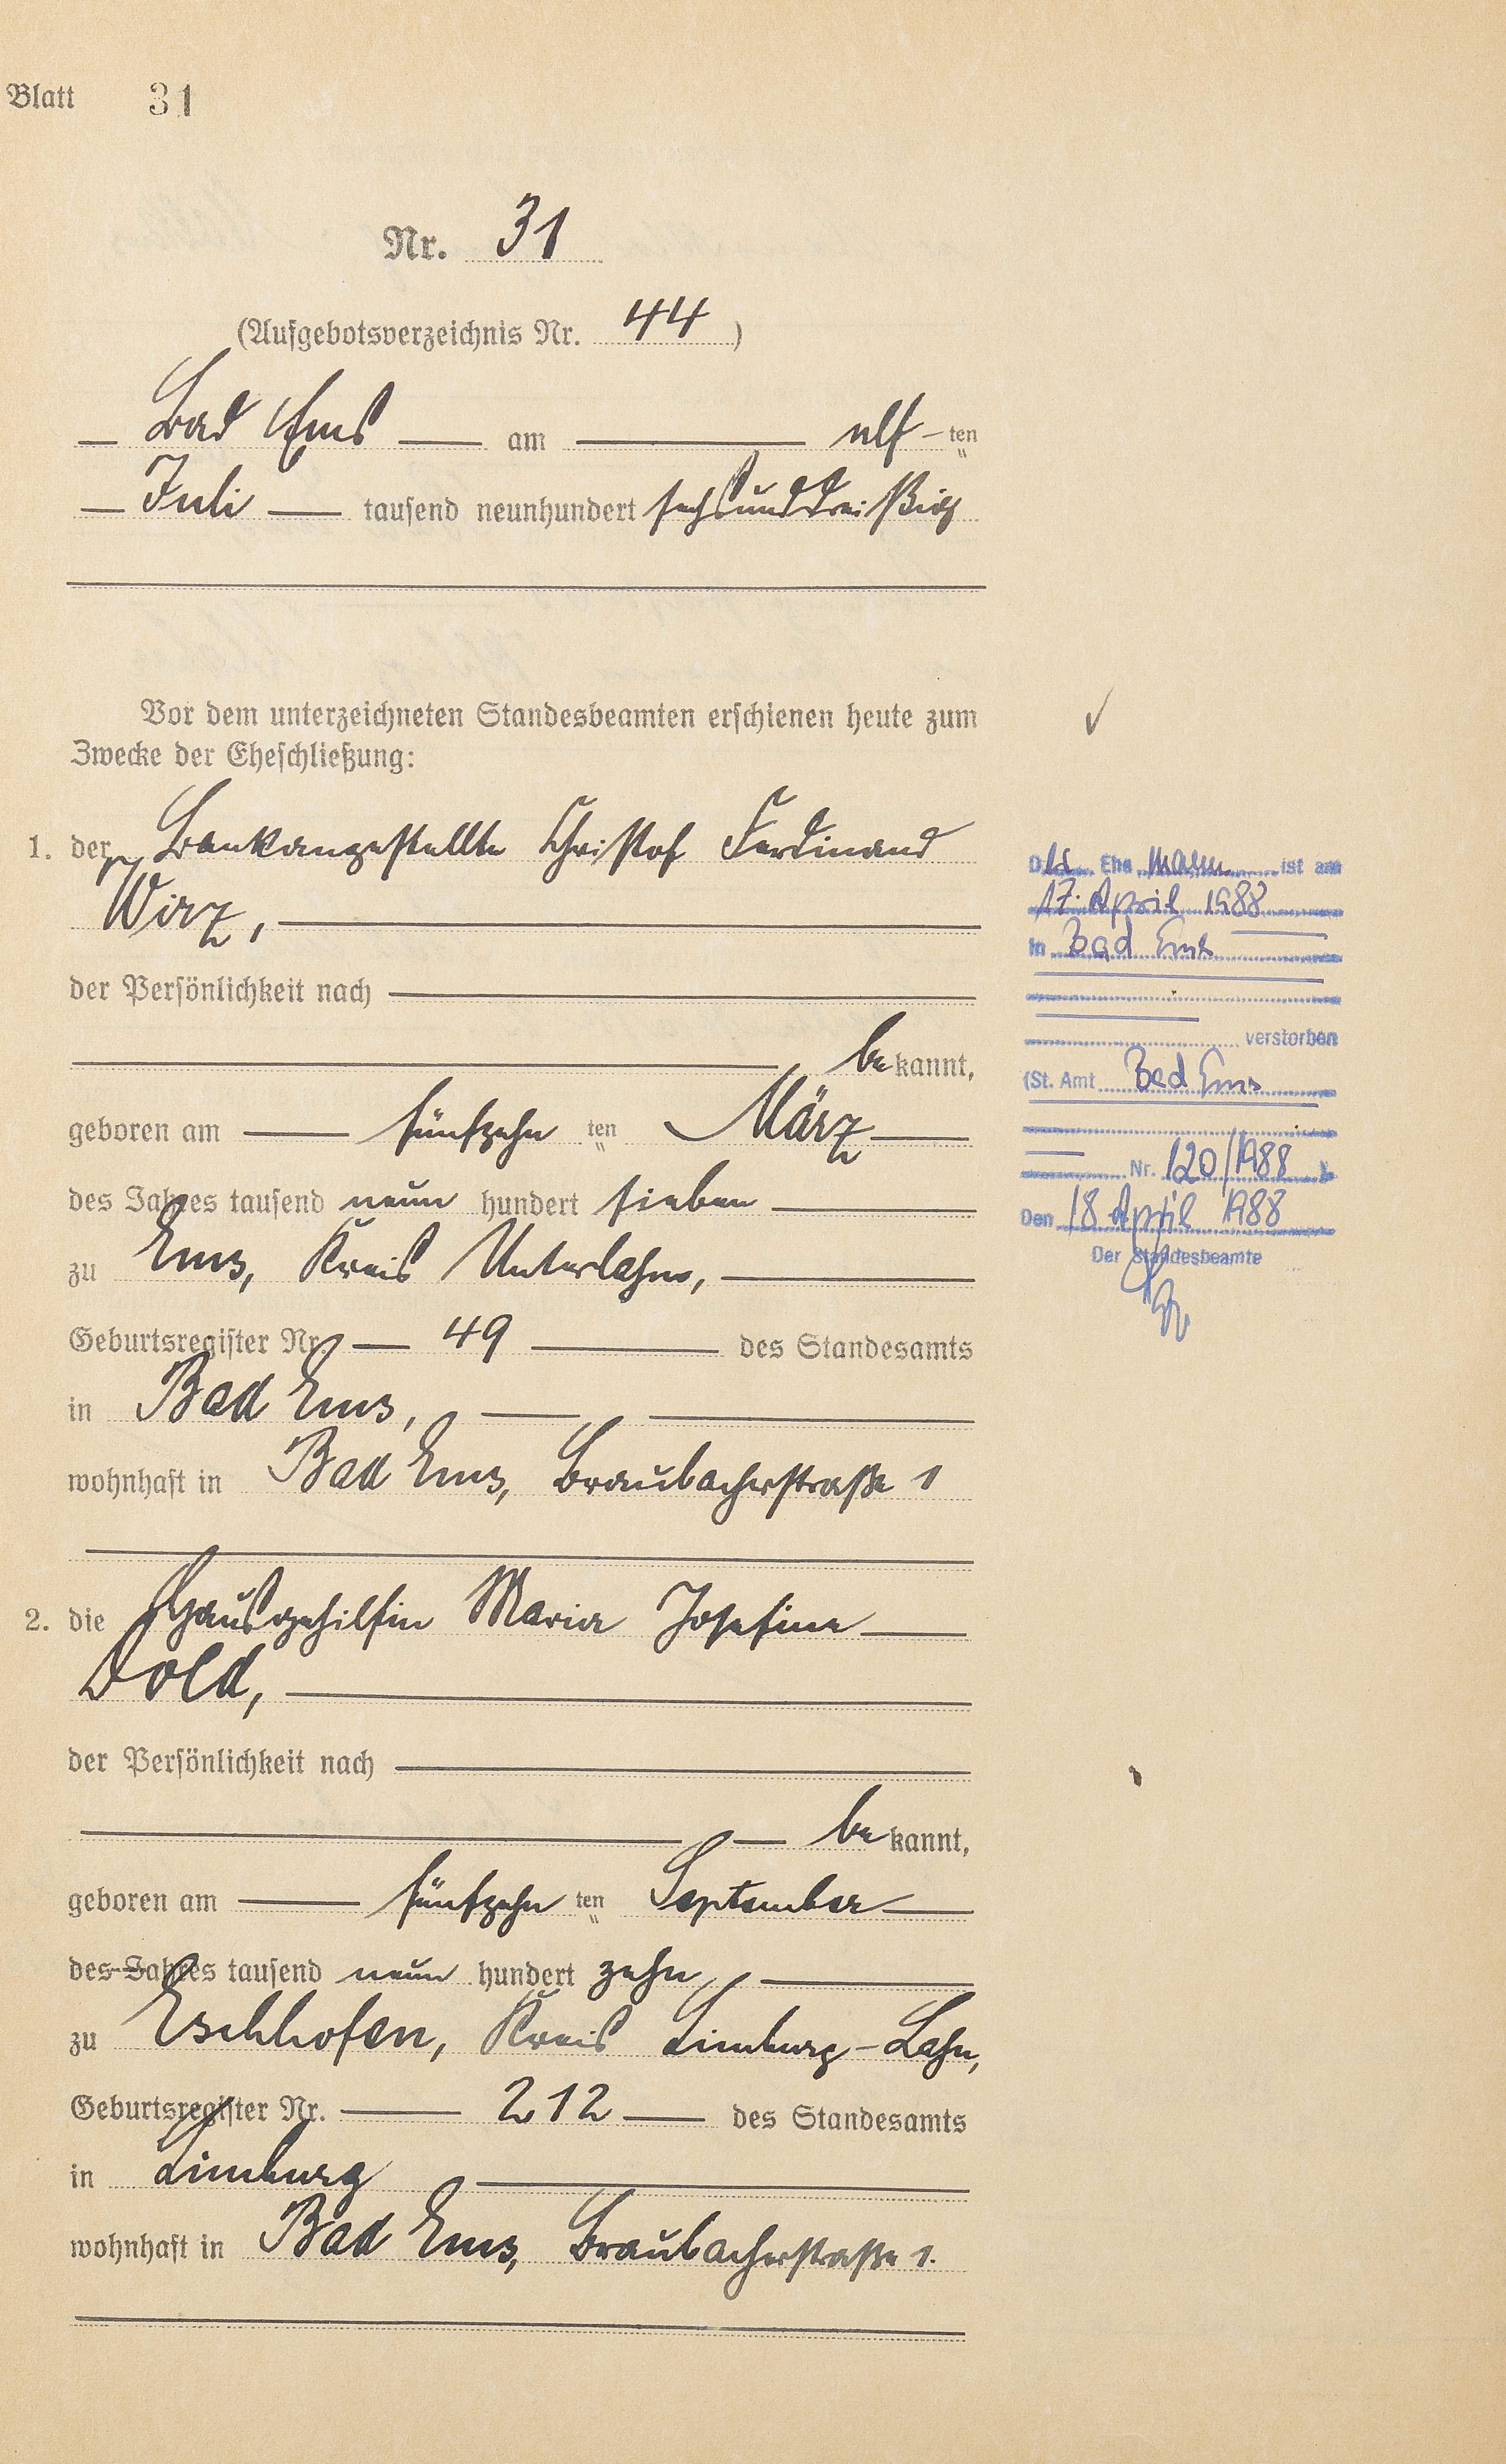 Blatt 31
Nr. 31
(Aufgebotsverzeichnis Nr. 44)
Bad Ems am elf-ten
Juli tausend neunhundert sechsunddreißig
Vor dem unterzeichneten Standesbeamten erschienen heute zum
Zwecke der Eheschließung:
1. der Bankangestellte Christof Ferdinand
Wirz,
der Persönlichkeit nach
bekannt,
geboren am fünfzehn ten März
des Jahres tausend neun hundert sieben
zu Ems, Kreis Unterlahn,
Geburtsregister Nr. 49 des Standesamts
in Bad Ems,
wohnhaft in Bad Ems, Braubacherstraße 1
2. die Hausgehilfin Maria Josefine
Dold,
der Persönlichkeit nach
bekannt,
geboren am fünfzehn ten September
des Jahres tausend neun hundert zehn
zu Eschhofen, Kreis Limburg-Lahn,
Geburtsregister Nr. 212 des Standesamts
in Limburg
wohnhaft in Bad Ems, Braubacherstraße 1.
Der Ehe mann ist am
17. April 1988
in Bad Ems
verstorben
(St. Amt Bad Ems
Nr. 120/1988 )
Den 18 April 1988
Der Standesbeamte